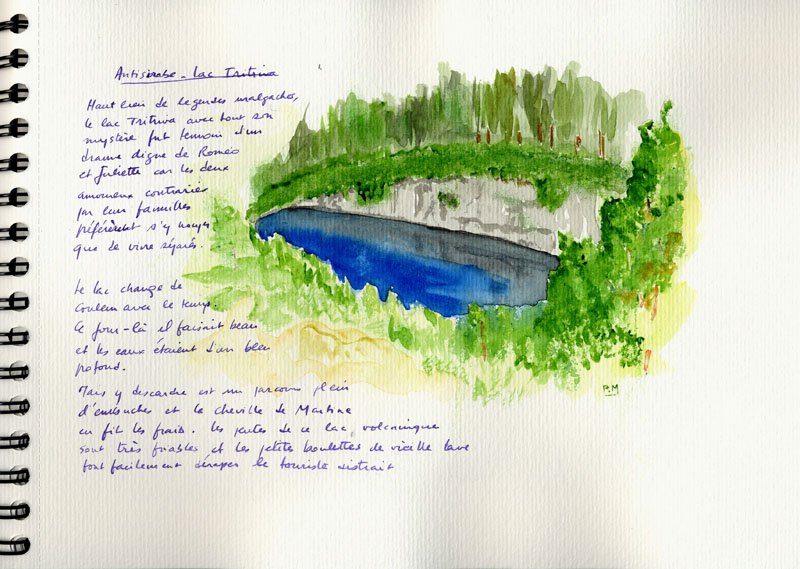 Antsirabe - Lac Tritriva
Haut lieu de légendes malgaches,
le lac Tritriva avec tout son
mystère fut témoin d'un
drame digne de Roméo
et Juliette car les deux
amoureux contrariés
par leur familles
préférèrent s'y noyer
que de vivre séparés.
Le lac change de
couleur avec le temps.
Ce jour-là il faisait beau
et les eaux étaient d'un bleu
profond.
Mais y descendre est un parcours plein
d'embuches et la cheville de Martine
en fit les frais. Les pentes de ce lac volcanique
sont très friables et les petites boulettes de vieille lave
font facilement déraper le touriste distrait
P.M